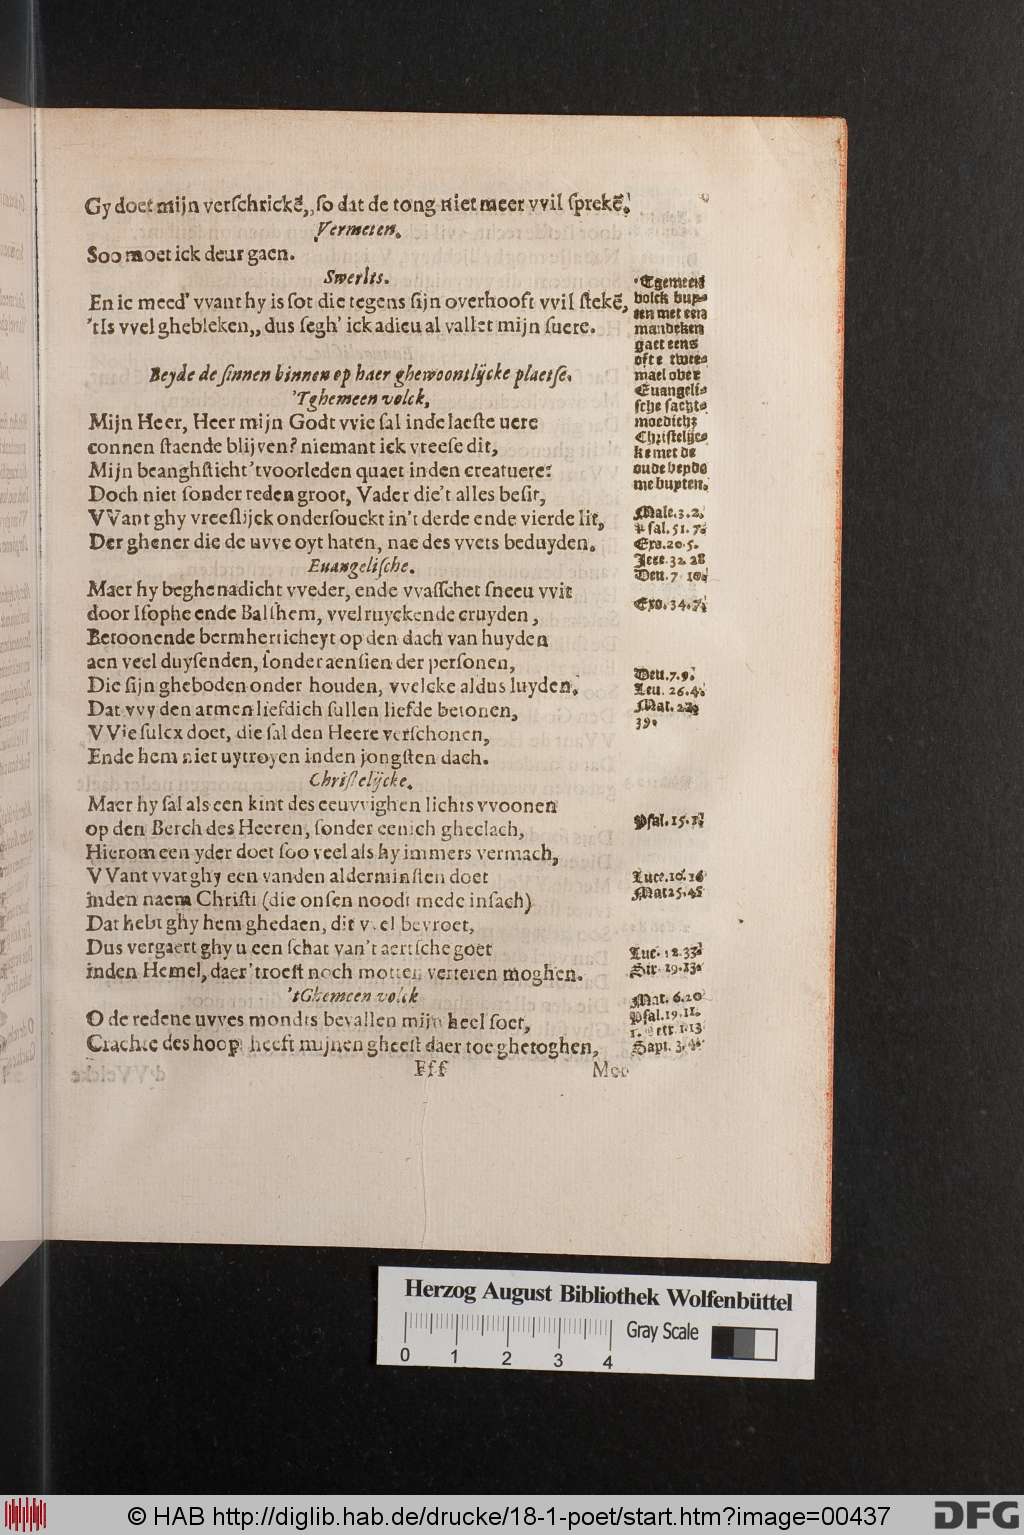 Gy doet mijn verſchrickē,, ſo dat de tong niet meer vvil ſprekē.
Vermeten.
Soo moet ick deur gaen.
Swerlts.
En ic meed' vvant hy is ſot die tegens ſijn overhooft vvil ſtekē,
'tIs vvel ghebleken,, dus ſegh' ick adieu al vallet mijn ſuere.
Beyde de ſinnen binnen op haer ghewoontlijcke plaetſe.
'Tghemeen volck,
Mijn Heer, Heer mijn Godt vvie ſal inde laeſte uere
connen ſtaende blijven? niemant ick vreeſe dit,
Mijn beanghſticht 'tvoorleden quaet inden creatuere:
Doch niet ſonder reden groot, Vader die't alles beſit,
VVant ghy vreeſlijck onderſouckt in't derde ende vierde lit,
Der ghener die de uvve oyt haten, nae des vvets beduyden.
Euangeliſche.
Maer hy beghenadicht vveder, ende vvaſſchet ſneeu vvit
door Iſophe ende Balſhem, vvelruyckende cruyden,
Betoonende bermherticheyt op den dach van huyden
aen veel duyſenden, ſonder aenſien der perſonen,
Die ſijn gheboden onder houden, vvelcke aldus luyden,
Dat vvy den armen liefdich ſullen liefde betonen,
VVie ſulcx doet, die ſal den Heere verſchonen,
Ende hem niet uytroyen inden jongſten dach.
Chriſtelijcke.
Maer hy ſal als een kint des eeuvvighen lichts vvoonen
op den Berch des Heeren, ſonder eenich gheclach,
Hierom een yder doet ſoo veel als hy immers vermach,
VVant vvat ghy een vanden alderminſten doet
inden naem Chriſti (die onſen noodt mede inſach)
Dat hebt ghy hem ghedaen, dit vvel bevroet,
Dus vergaert ghy u een ſchat van't aertſche goet
inden Hemel, daer 'troeſt noch motten verteren moghen.
'tGhemeen volck
O de redene uvves mondts bevallen mijn heel ſoet,
Crachte des hoop heeft mijnen gheeſt daer toe ghetoghen,
Fff
Moo
Tgemeen
volck buy-
ten met een
mandeken
gaet eens
ofte twee-
mael over
Euangeli-
ſche ſacht-
moedich;
Chriſtelijc-
ke met de
oude beyde
me buyten.
Male. 3. 2.
Pſal. 51. 7.
Exo. 20. 5.
Jere. 32. 28
Deu. 7 10.
Exo. 34. 7.
Deu. 7. 9.
Leu. 26. 4.
Mat. 22
39.
Pſal. 15. 1.
Luce. 10. 16
Mat 25. 45
Luc. 12. 33
Sir. 29. 13
Mat. 6. 20
Pſal. 19. 11.
1. Petr 1 13
Sapi. 3. 4.
Herzog August Bibliothek Wolfenbüttel
0 1 2 3 4
Gray Scale
© HAB http://diglib.hab.de/drucke/18-1-poet/start.htm?image=00437
DFG